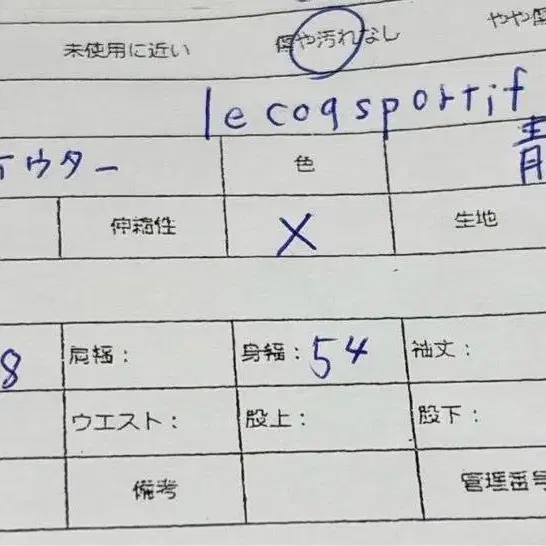 未使用に近い 傷や汚れなし やや傷
le coq sportif
アウター 色 青
伸縮性 × 生地
8 肩幅： 身幅：54 袖丈：
ウエスト： 股上： 股下：
備考 管理番号